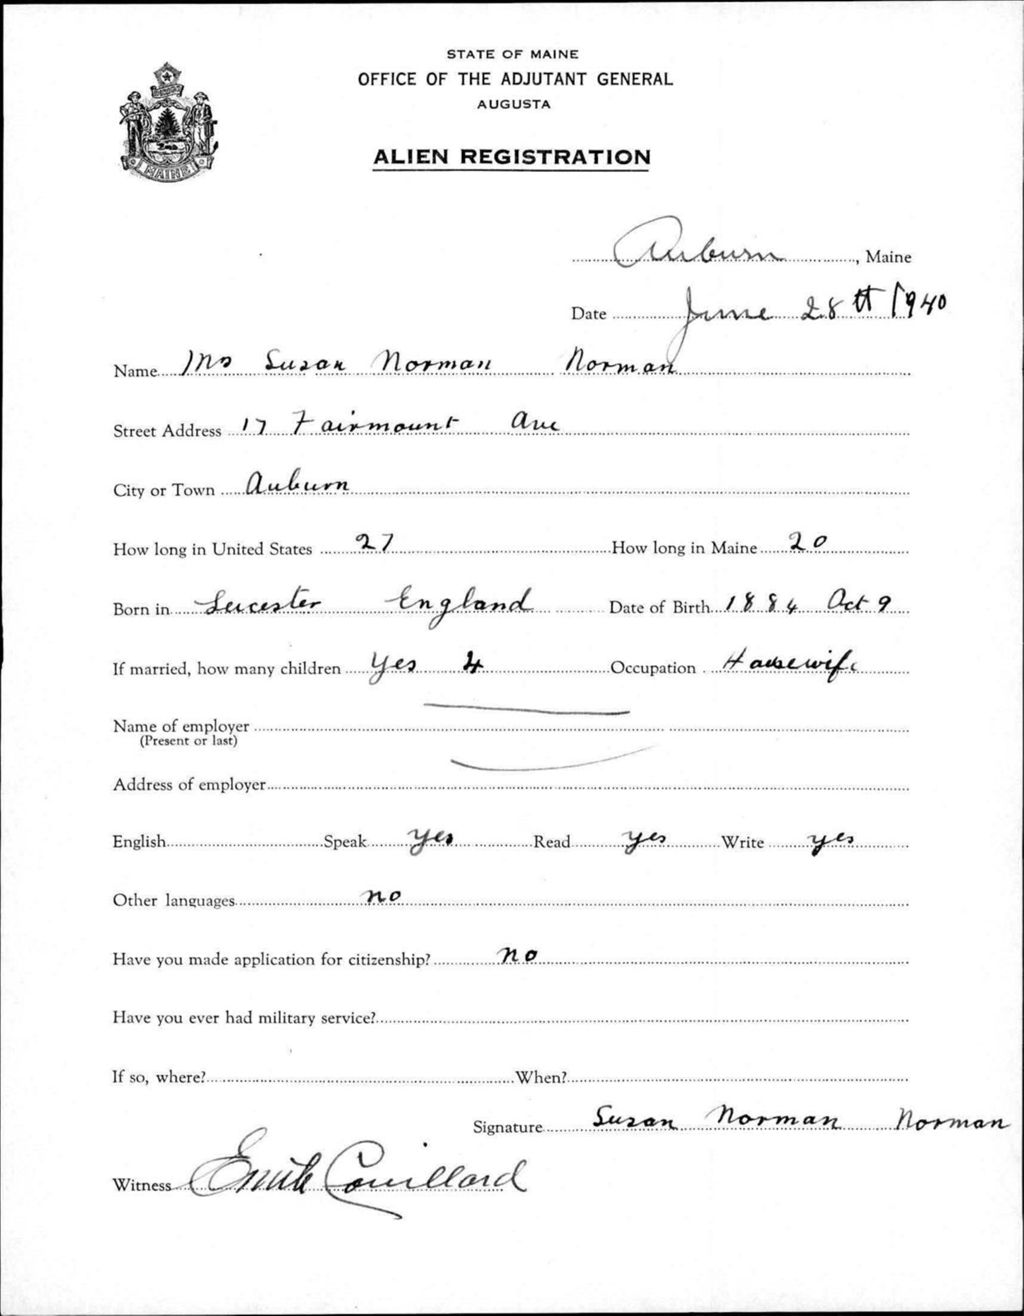 STATE OF MAINE
OFFICE OF THE ADJUTANT GENERAL
AUGUSTA
ALIEN REGISTRATION
MAINE
Auburn, Maine
Date June 28th 1940
Name Mrs Susan Norman Norman
Street Address 17 Fairmount Ave
City or Town Auburn
How long in United States 27 How long in Maine 20
Born in Leicester England Date of Birth 1884 Oct 9
If married, how many children Yes 4 Occupation Housewife
Name of employer
(Present or last)
Address of employer
English Speak yes Read yes Write yes
Other languages no
Have you made application for citizenship? no
Have you ever had military service?
If so, where? When?
Signature Susan Norman Norman
Witness Emile Couillard